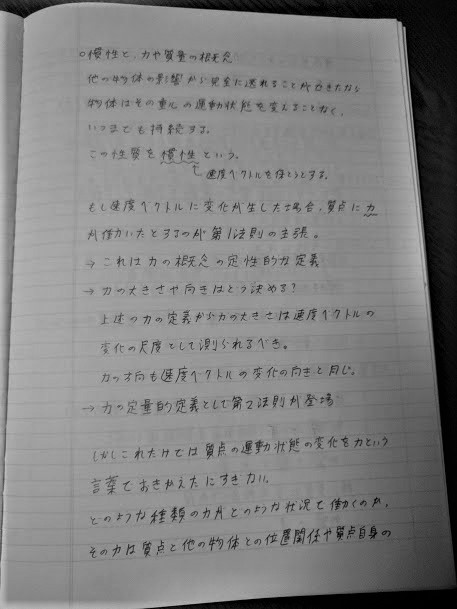 ○慣性と、力や質量の概念
他の物体の影響から完全に逃れることができたなら
物体はその重心の運動状態を変えることなく、
いつまでも持続する。
この性質を慣性という。
速度ベクトルを保とうとする。
もし速度ベクトルに変化が生じた場合、質点に力
が働いたとするのが第1法則の主張。
→ これは力の概念の定性的な定義
→ 力の大きさや向きはどう決める?
上述の力の定義から力の大きさは速度ベクトルの
変化の尺度として測られるべき。
力の方向も速度ベクトルの変化の向きと同じ。
→ 力の定量的定義として第2法則が登場
しかしこれだけでは質点の運動状態の変化を力という
言葉でおきかえたにすぎない。
どのような種類の力がどのような状況で働くのか、
その力は質点と他の物体との位置関係や質点自身の